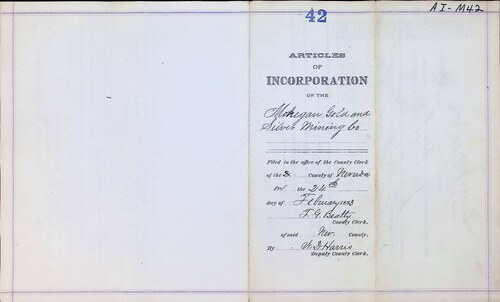 42
AI-M42
ARTICLES
OF
INCORPORATION
OF THE
Mohegan Gold and
Silver Mining Co
Filed in the office of the County Clerk
of the County of Nevada
the 24th
day of February 1883
T. G. Beatty
County Clerk.
of said Nev. County.
By W. D. Harris
Deputy County Clerk.